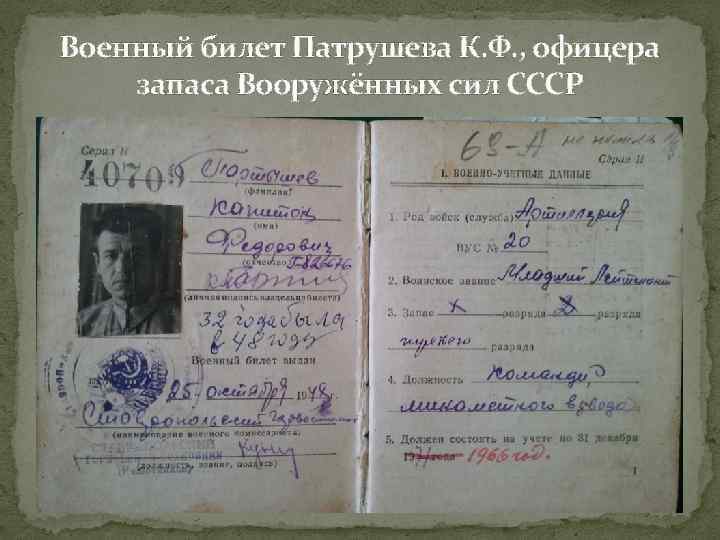 Военный билет Патрушева К.Ф., офицера
запаса Вооружённых сил СССР
Серия II
40709
Партышев
(фамилия)
Капитон
(имя)
Федорович
(отчество)
(личная подпись владельца билета)
32 года было
в 48 году
Военный билет выдан
25 октября 1948 г.
(наименование военного комиссариата)
(должность, звание, подпись)
69-А не
Серия II
I. ВОЕННО-УЧЕТНЫЕ ДАННЫЕ
1. Род войск (служба) Артиллерия
ВУС № 20
2. Воинское звание Младший Лейтенант
3. Запас разряда 2 разряда
разряда
4. Должность Командир
минометного взвода
5. Должен состоять на учете по 31 декабря
1966 год.
1